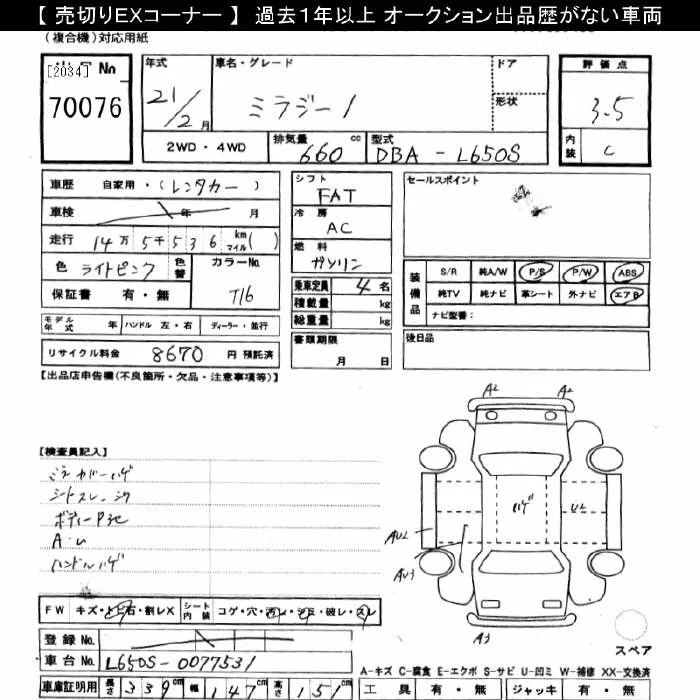 【 売切りEXコーナー 】 過去1年以上 オークション出品歴がない車両
(複合機)対応用紙
[2034] No
70076
年式
21/2月
車名・グレード
ミラジーノ
ドア
形状
評価点
3.5
内装 C
2WD・4WD
排気量 660 cc
型式 DBA - L650S
車歴 自家用・(レンタカー)
車検 年 月
走行 14万5千536 km マイル( )
色 ライトピンク 色替
カラーNo. T16
保証書 有・無
シフト
FAT
冷房
AC
燃料
ガソリン
乗車定員 4名
積載量 kg
総重量 kg
書類期限
月 日
セールスポイント
装備品
S/R 純A/W P/S P/W ABS
純TV 純ナビ 革シート 外ナビ エアB
ナビ型番:
後日品
モデル年式 年 ハンドル 左・右 ディーラー・並行
リサイクル料金 8670 円 預託済
【出品店申告欄(不良箇所・欠品・注意事項等)】
【検査員記入】
シートスレ・シワ
A・U
ハンドルハゲ
A2 A2
ハゲ
U2
AU2
AU3
A3
スペア
FW キズ・トビ石・割レX シート内装 コゲ・穴・汚レ・シミ・破レ・スレ
登録No.
車台No. L650S-0077531
車庫証明用 長さ 339cm 幅 147cm 高さ 151cm
A-キズ C-腐食 E-エクボ S-サビ U-凹ミ W-補修 XX-交換済
工具 有・無 ジャッキ 有・無